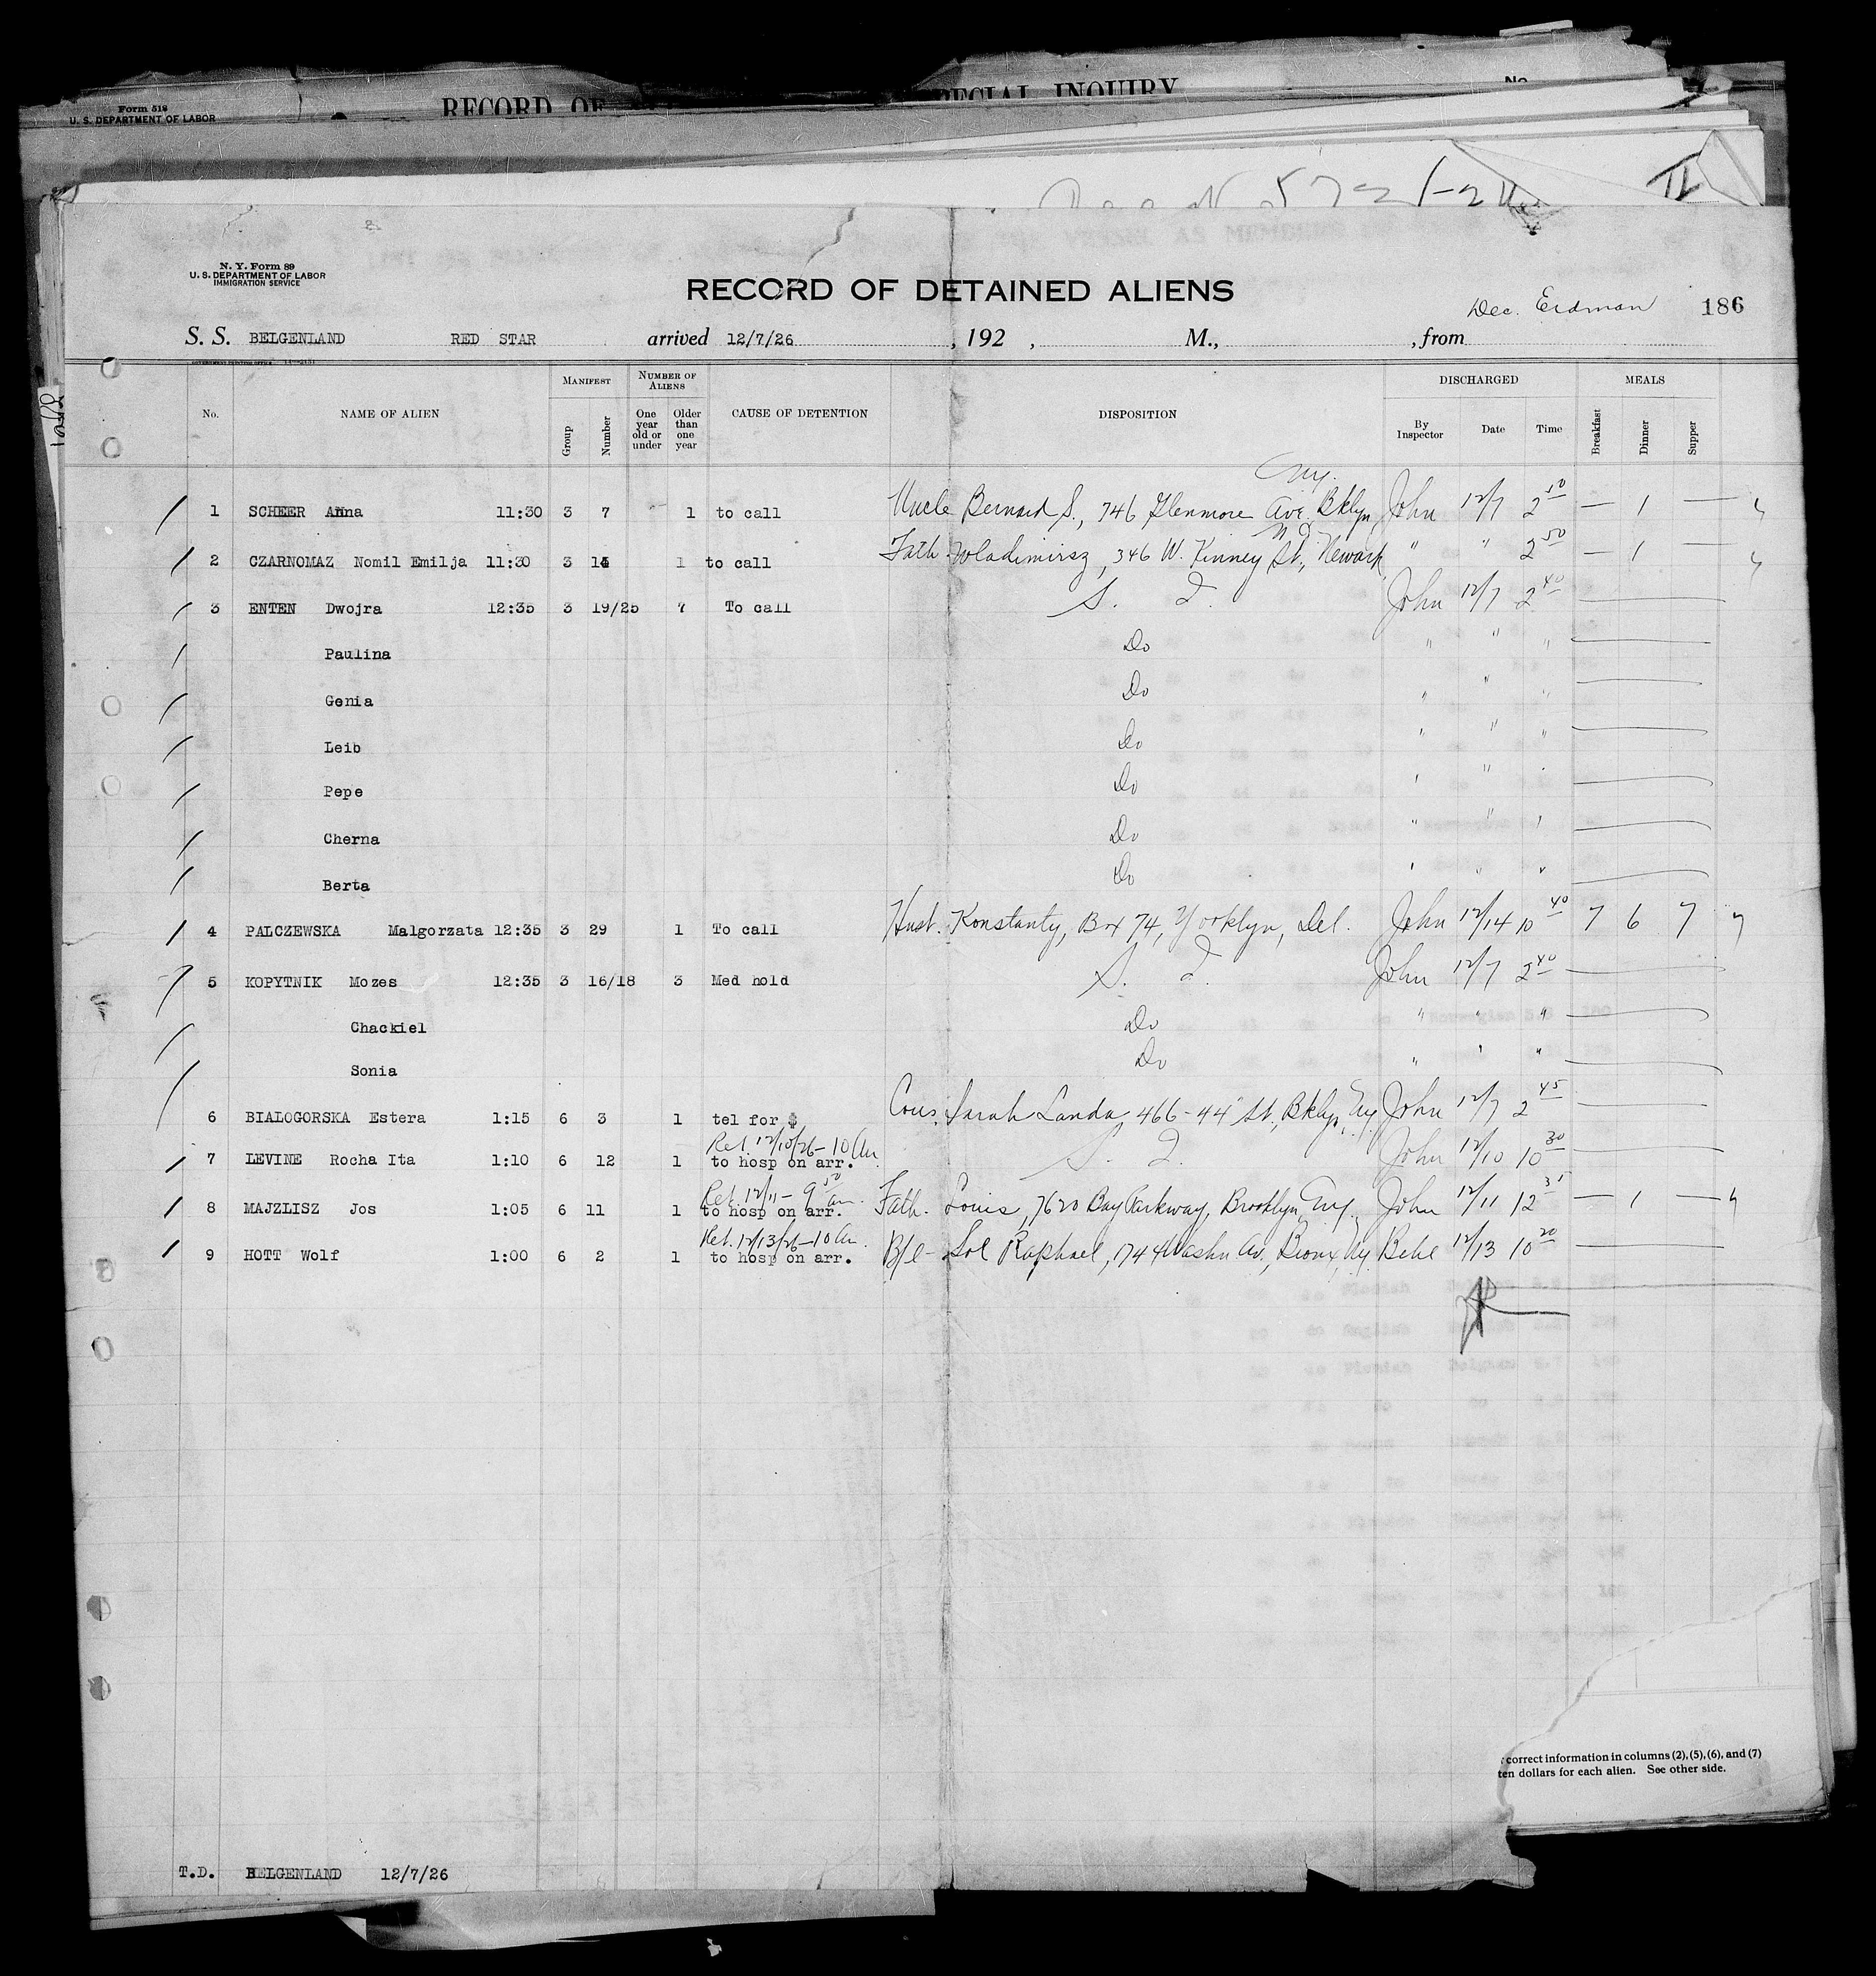 Form 518
U. S. DEPARTMENT OF LABOR
RECORD OF SPECIAL INQUIRY
No.
II
N. Y. Form 89
U. S. DEPARTMENT OF LABOR
IMMIGRATION SERVICE
RECORD OF DETAINED ALIENS
Dec. Erdman 186
S. S. BELGENLAND RED STAR arrived 12/7/26, 192 , M., , from
No. NAME OF ALIEN MANIFEST Group Number NUMBER OF ALIENS One year old or under Older than one year CAUSE OF DETENTION DISPOSITION DISCHARGED By Inspector Date Time MEALS Breakfast Dinner Supper
1 SCHEER Anna 11:30 3 7 1 to call Uncle Bernard S., 746 Glenmore Ave. Bklyn NY. John 12/7 2 50 — 1 —
2 CZARNOMAZ Nomil Emilja 11:30 3 14 1 to call Fath. Wladimirsz, 346 W. Kinney St., Newark N J. " " 2 50 — 1 —
3 ENTEN Dwojra 12:35 3 19/25 7 To call S. I. John 12/7 2 40
Paulina Do " " "
Genia Do " " "
Leib Do " " "
Pepe Do " " "
Cherna Do " " "
Berta Do " " "
4 PALCZEWSKA Malgorzata 12:35 3 29 1 To call Husb. Konstanty, Box 74, Yorklyn, Del. John 12/14 10 40 7 6 7
5 KOPYTNIK Mozes 12:35 3 16/18 3 Med hold S. I. John 12/7 2 40
Chackiel Do " " "
Sonia Do " " "
6 BIALOGORSKA Estera 1:15 6 3 1 tel for $ Cous. Sarah Landa, 466 - 44" St., Bklyn, Ny John 12/7 2 45
Ret. 12/10/26 - 10 Am.
7 LEVINE Rocha Ita 1:10 6 12 1 to hosp on arr. S. I. John 12/10 10 30
Ret. 12/11 - 9 50 am.
8 MAJZLISZ Jos 1:05 6 11 1 to hosp on arr. Fath. Louis, 7620 Bay Parkway, Brooklyn, Ny. John 12/11 12 35 — 1 —
Ret. 12/13/26 - 10 Am.
9 HOTT Wolf 1:00 6 2 1 to hosp on arr. B/l - Sol Raphael, 1744 Washn Av., Bronx, Ny. 12/13 10 20
correct information in columns (2), (5), (6), and (7)
ten dollars for each alien. See other side.
T.D. BELGENLAND 12/7/26